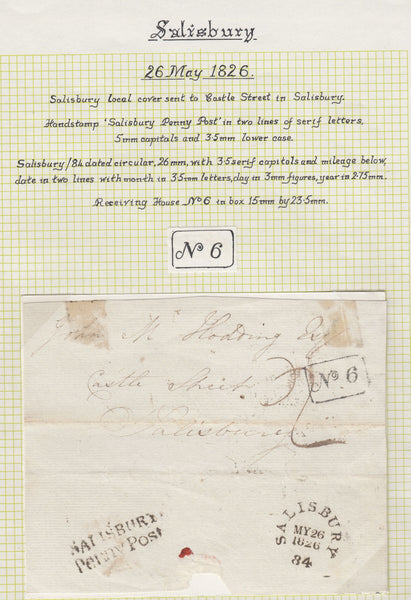 Salisbury
26 May 1826.
Salisbury local cover sent to Castle Street in Salisbury.
Handstamp 'Salisbury Penny Post' in two lines of serif letters,
5mm capitals and 3·5mm lower case.
Salisbury/84 dated circular, 26mm, with 3·5 serif capitals and mileage below,
date in two lines with month in 3·5mm letters, day in 3mm figures, year in 2·75mm.
Receiving House No 6 in box 15mm by 23·5mm.
No 6
John Mr Hodding Esq
Castle Street
Salisbury
No 6
SALISBURY
Penny Post
SALISBURY
MY 26
1826
84